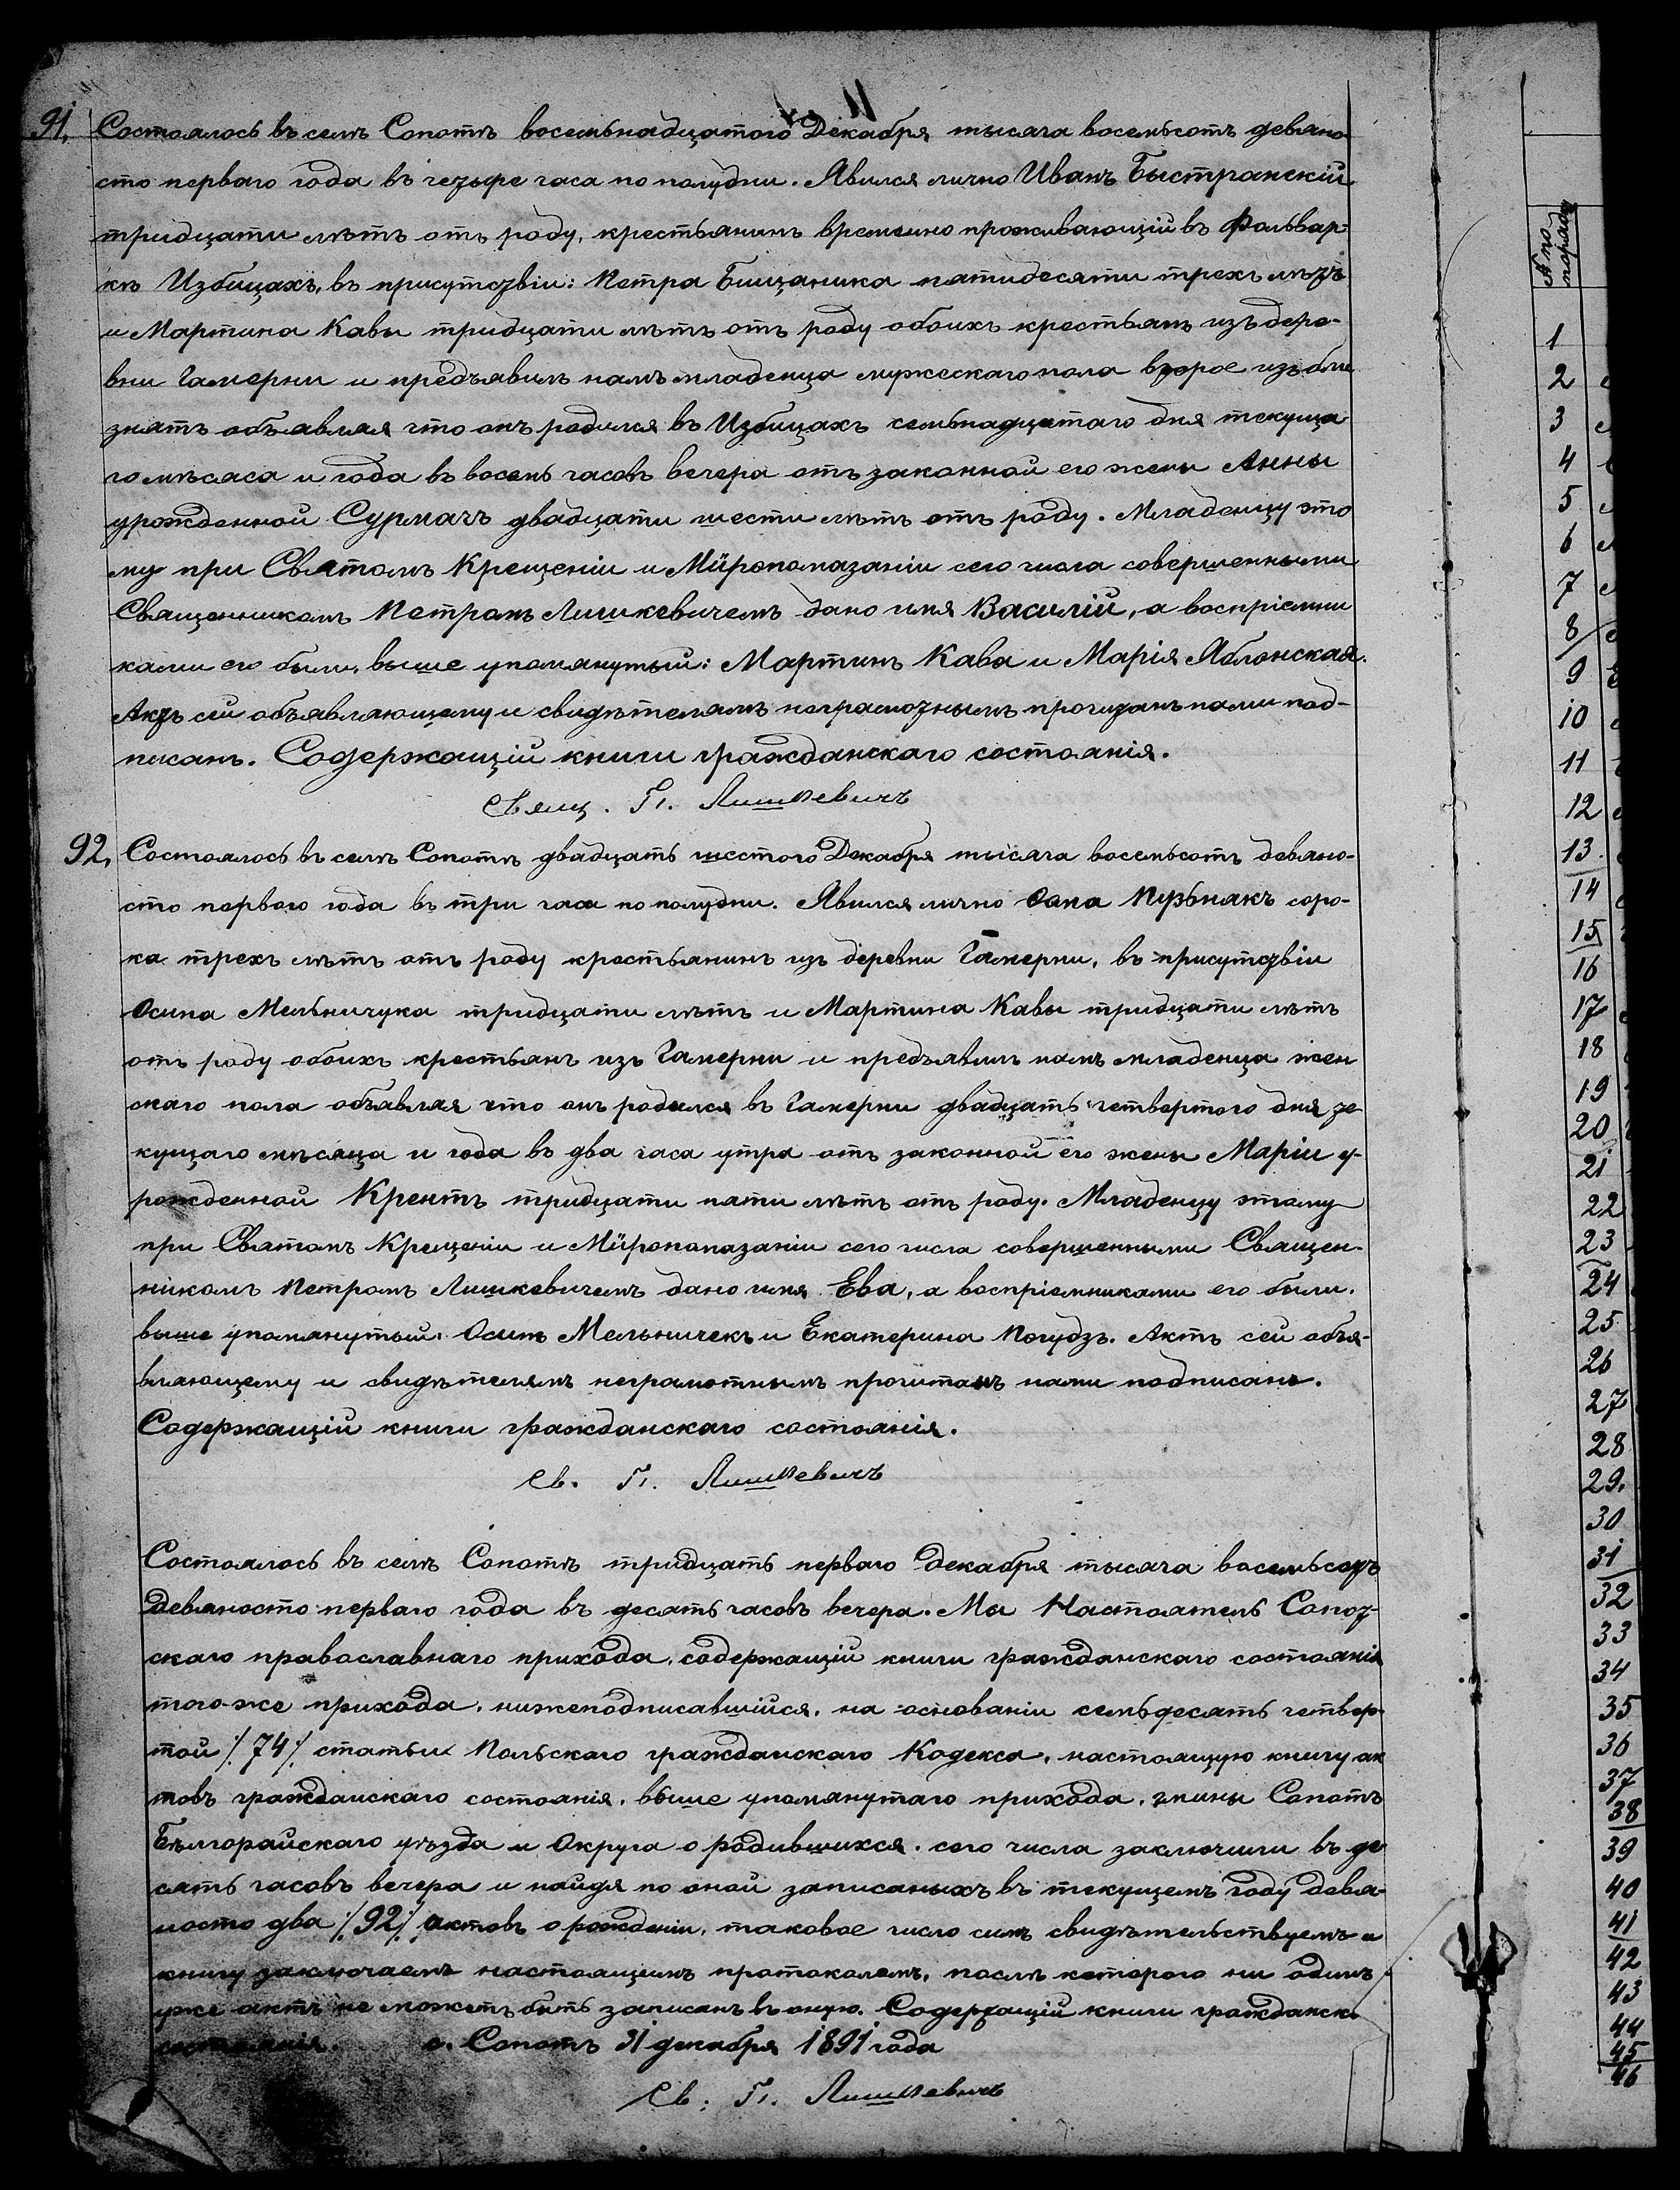 91. Состоялось въ селѣ Сопотѣ восемьнадцатого Декабря тысяча восемьсотъ девяно-
сто перваго года въ четыре часа по полудни. Явился лично Иванъ Быстранскій
тридцати лѣтъ отъ роду, крестьянинъ временно проживающій въ Фольвар-
кѣ Избицахъ, въ присутствіи: Петра Бищаника пятидесяти трехъ лѣтъ
и Мартина Кавы тридцати лѣтъ отъ роду обоихъ крестьянъ изъ дере-
вни Гамерни и предъявилъ намъ младенца мужескаго пола второе изъ бли
знятъ объявляя что онъ родился въ Избицахъ семьнадцатаго дня текуща
го мѣсяса и года въ восемь часовъ вечера отъ законной его жены Анны
урожденной Сурмачъ двадцати шести лѣтъ отъ роду. Младенцу это
му при Святомъ Крещеніи и Мѵропомазаніи сего числа совершенными
Священникомъ Петромъ Лишкевичемъ дано имя Василій, а воспріемни
ками его были, выше упомянутый: Мартинъ Кава и Марія Яблонская.
Актъ сей объявляющему и свидѣтелямъ неграмотнымъ прочитанъ нами под-
писанъ. Содержащій книги гражданскаго состоянія.
Свящ. П. Лишкевичъ
92. Состоялось въ селѣ Сопотѣ двадцать шестого Декабря тысяча восемьсотъ девяно-
сто перваго года въ три часа по полудни. Явился лично Ѳома Пузьнякъ соро-
ка трехъ лѣтъ отъ роду крестьянинъ изъ деревни Гамерни, въ присутствіи
Осипа Мельничука тридцати лѣтъ и Мартина Кавы тридцати лѣтъ
отъ роду обоихъ крестьянъ изъ Гамерни и предъявилъ намъ младенца жен
скаго пола объявляя что онъ родился въ Гамерни двадцать четвертого дня те
кущаго мѣсяца и года въ два часа утра отъ законной его жены Маріи у-
рожденной Крентъ тридцати пяти лѣтъ отъ роду. Младенцу этому
при Святомъ Крещеніи и Мѵропомазаніи сего числа совершенными Священ-
никомъ Петромъ Лишкевичемъ дано имя Ева, а воспріемниками его были,
выше упомянутый: Осипъ Мельничекъ и Екатерина Погудзъ. Актъ сей объя-
вляющему и свидѣтелямъ неграмотнымъ прочитанъ нами подписанъ.
Содержащій книги гражданскаго состоянія.
Св. П. Лишкевичъ
Состоялось въ селѣ Сопотѣ тридцать перваго Декабря тысяча восемьсотъ
девяносто перваго года въ десять часовъ вечера. Мы Настоятель Сопот-
скаго православнаго прихода, содержащій книги гражданскаго состоянія
того-же прихода, нижеподписавшійся, на основаніи семьдесять четвер-
той /74/ статьи Польскаго гражданскаго Кодекса, настоящую книгу ак
товъ гражданскаго состоянія, выше упомянутаго прихода, гмины Сопотъ
Бѣлгорайскаго уѣзда и Округа о родившихся, сего числа заключили въ де
сять часовъ вечера и найдя по оной записаныхъ въ текущемъ году девя-
носто два /92/ актовъ о рожденіи, таковое число симъ свидѣтельствуемъ и
книгу заключаемъ настоящимъ протоколомъ, послѣ которого ни одинъ
уже актъ не можетъ быть записанъ въ оную. Содержащій книги гражданск.
состоянія. с. Сопотъ 31 декабря 1891 года
Св. П. Лишкевичъ
№ по
порядку
1
2
3
4
5
6
7
8
9
10
11
12
13
14
15
16
17
18
19
20
21
22
23
24
25
26
27
28
29.
30
31
32
33
34
35
36
37
38
39
40
41
42
43
44
45
46